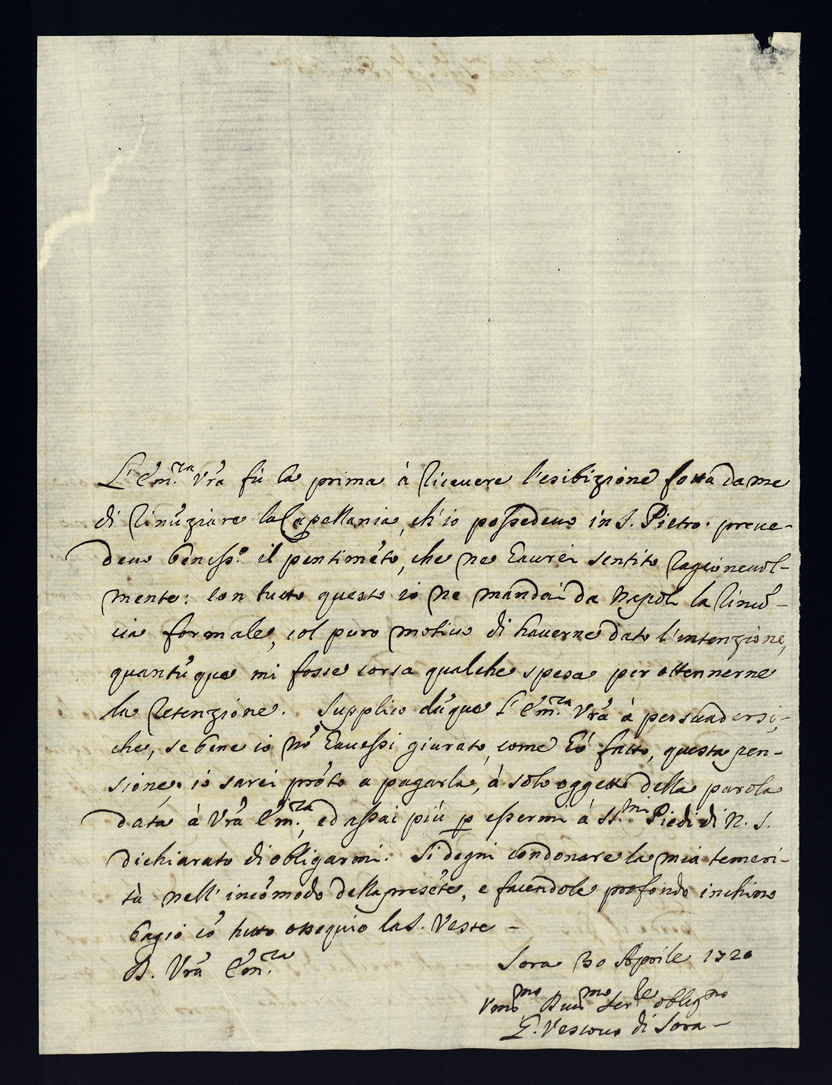 L'Em.za Vr̃a fù la prima à riceuere l'esibizione fatta da me
di rinũziare la Capellania, ch'io possedeuo in S. Pietro. preue-
deuo beniss.o il pentimẽto, che ne haurei sentito ragioneuol-
mente: con tutto questo io ne mandai da Napoli la rinũ-
cia formale, col puro motiuo di hauerne dato l'intenzione,
quantũque mi fosse corsa qualche spesa per ottennerne
la retenzione. Supplico dũque l'Em.za Vr̃a à persuadersi,
che, se bene io nõ hauessi giurato, come hò fatto, questa pen-
sione, io sarei prõto a pagarla, à solo oggetto della parola
data à Vr̃a Em.za, ed assai più p essermi à SS.mi Piedi di N. S.
dichiarato di obligarmi. Si degni condonare la mia temeri-
tà nell'incõmodo della presẽte, e facendole profondo inchino
bagio cõ tutto ossequio la S. Veste -
D. Vr̃a Em.za
Sora 30 Aprile 1720
Deu.mo Ser.re oblig.mo
Vescouo di Sora -